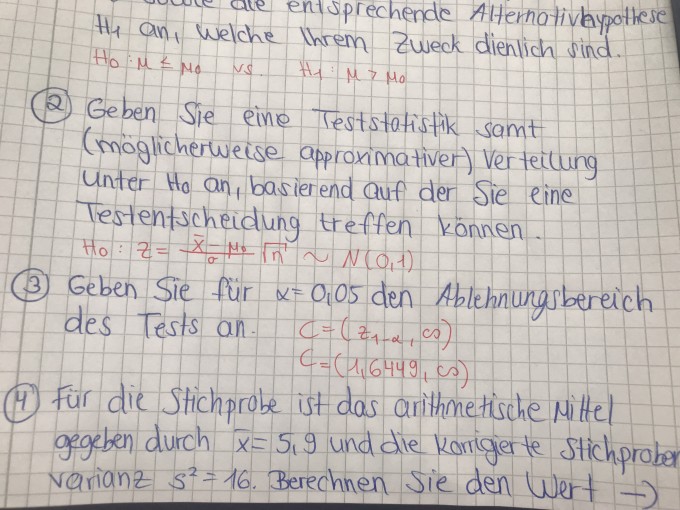 die entsprechende Alternativhypothese
H1 an, welche Ihrem Zweck dienlich sind.
H0: μ ≤ μ0 vs. H1: μ > μ0
② Geben Sie eine Teststatistik samt
(möglicherweise approximativer) Verteilung
unter H0 an, basierend auf der Sie eine
Testentscheidung treffen können.
H0: Z = (x̄ - μ0)/σ √n ~ N(0,1)
③ Geben Sie für α=0,05 den Ablehnungsbereich
des Tests an. C=(z1-α, ∞)
C=(1,6449, ∞)
④ Für die Stichprobe ist das arithmetische Mittel
gegeben durch x̄=5,9 und die korrigierte Stichproben
varianz s²=16. Berechnen Sie den Wert →